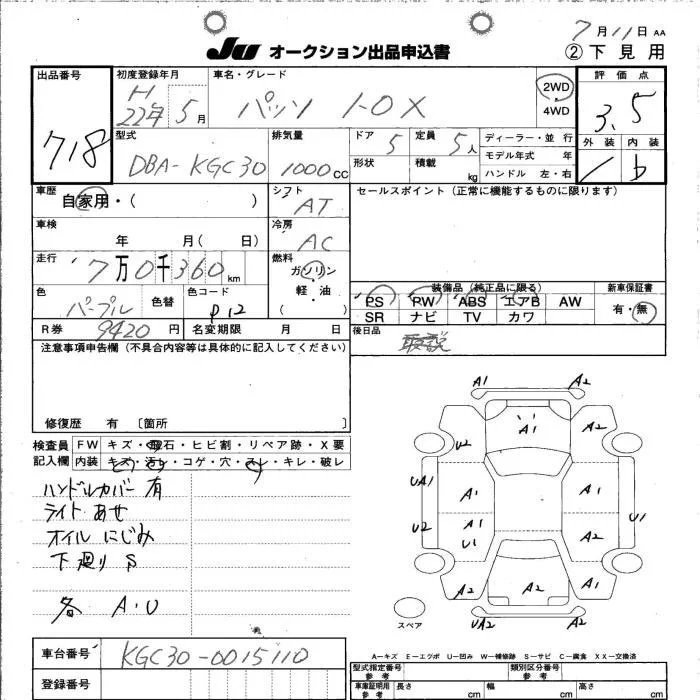 7月11日 AA
JU オークション出品申込書 ②下見用
出品番号 初度登録年月 車名・グレード 2WD 評価点
718 H22年5月 パッソ 1.0X 4WD 3.5
型式 排気量 ドア 5 定員 5人 ディーラー・並行 外装 内装
DBA-KGC30 1000cc 形状 積載 kg モデル年式 年 1 b
ハンドル 左・右
車歴 自家用・( ) シフト AT セールスポイント(正常に機能するものに限ります)
車検 年 月( 日) 冷房 AC
走行 7万0千360km 燃料 ガソリン・軽油 ( )
装備品(純正品に限る) 新車保証書
色 パープル 色替 色コード P12 PS PW ABS エアB AW 有・無
SR ナビ TV カワ
R券 9420円 名変期限 月 日 後日品
取説
注意事項申告欄(不具合内容等は具体的に記入してください)
修復歴 有 〔箇所 〕
検査員 FW キズ・飛石・ヒビ割・リペア跡・X要
記入欄 内装 キズ・汚レ・コゲ・穴・スレ・キレ・破レ
ハンドルカバー有
ライトあせ
オイルにじみ
下廻り S
各 A.U
A1 A2
A1 A2
U2
UA1 A1 A1
U2 A1 U1
U1 A2
A2 A2 A1
スペア UA2 A2
A-キズ E-エクボ U-凹み W-補修跡 S-サビ C-腐食 XX-交換済
車台番号 KGC30-0015110
型式指定番号 参考 類別区分番号 参考
登録番号 車庫証明用 参考 長さ cm 幅 cm 高さ cm